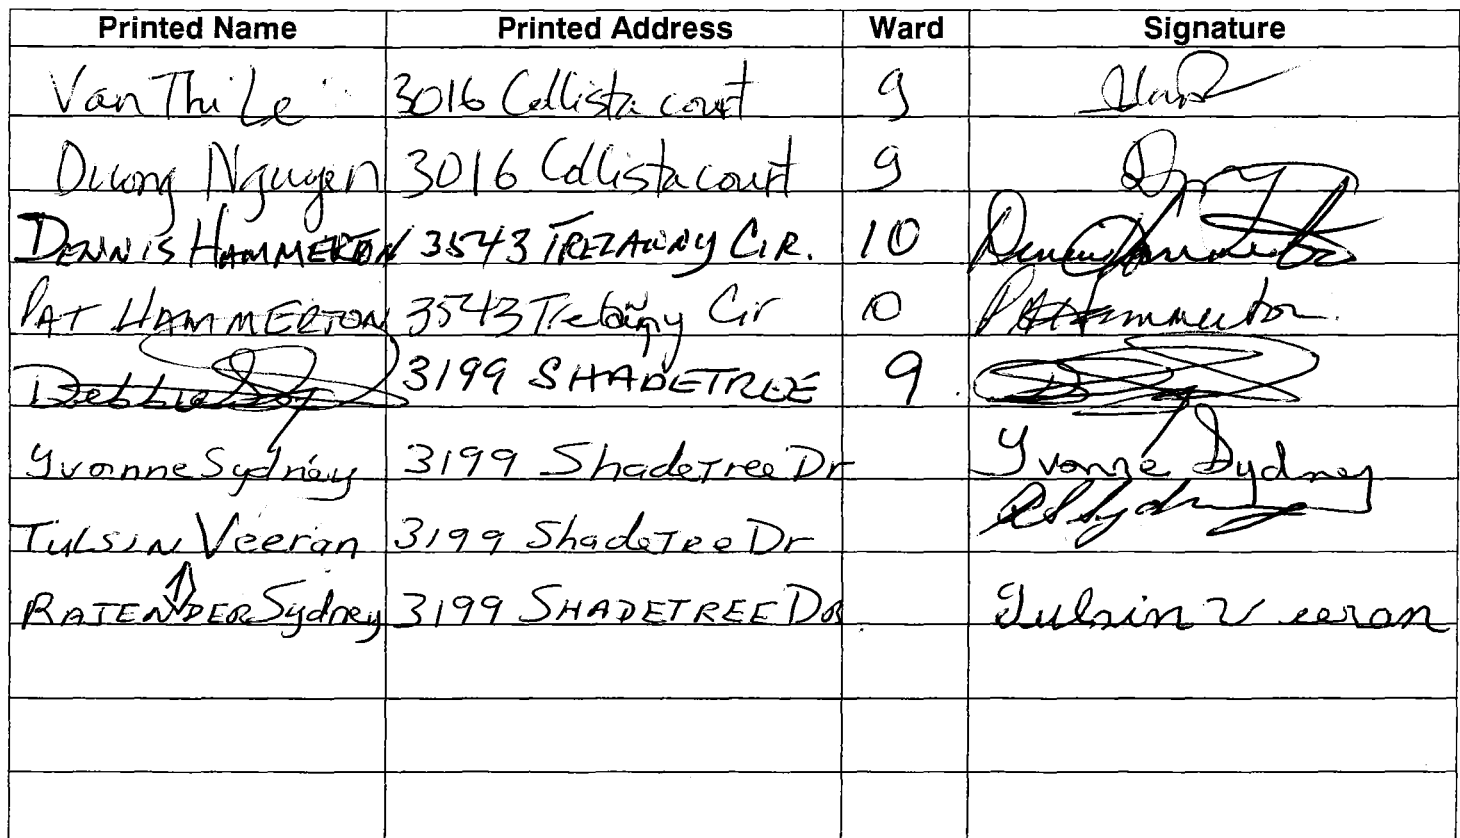 Printed Name Printed Address Ward Signature
Van Thi Le 3016 Collista court 9
Duong Nguyen 3016 Collista court 9
DENNIS HAMMERTON 3543 TRELAWNY CIR. 10
PAT HAMMERTON 3543 Trelawny Cir 10 PAHammerton
Debbie 3199 SHADETREE 9
Yvonne Sydney 3199 Shadetree Dr Yvonne Sydney
TULSIN Veeran 3199 Shadetree Dr RSSydney
RAJENDER Sydney 3199 SHADETREE DR Tulsin Veeran